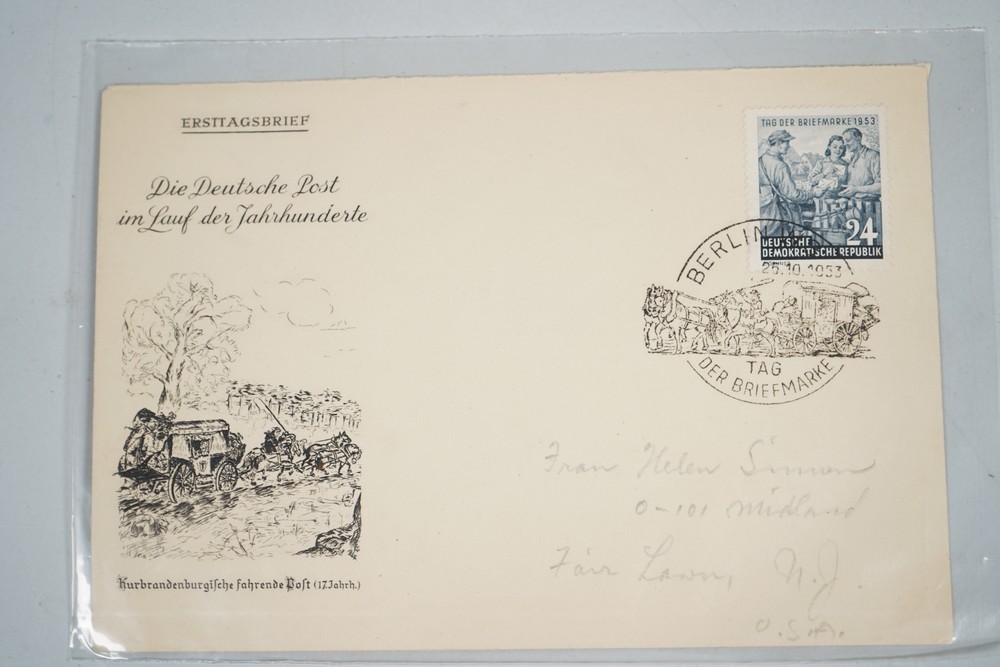 ERSTTAGSBRIEF
Die Deutsche Post
im Lauf der Jahrhunderte
Kurbrandenburgische fahrende Post (17. Jahrh.)
TAG DER BRIEFMARKE 1953
24
DEUTSCHE
DEMOKRATISCHE REPUBLIK
BERLIN
25.10.1953
TAG
DER BRIEFMARKE
Frau Helen Simon
0-101 Midland
Fair Lawn, N.J.
U.S.A.